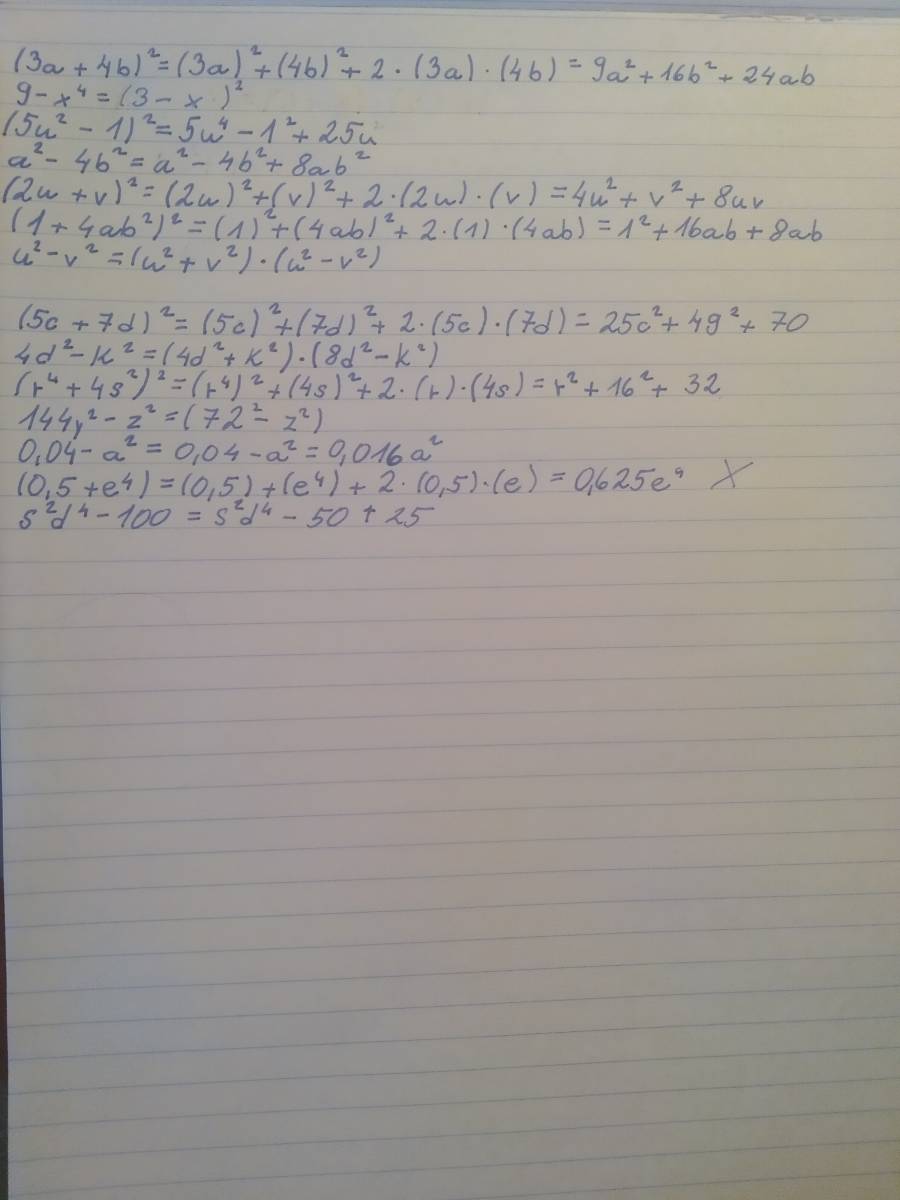 (3a + 4b)² = (3a)² + (4b)² + 2 · (3a) · (4b) = 9a² + 16b² + 24ab
9 - x⁴ = (3 - x )²
(5u² - 1)² = 5u⁴ - 1² + 25u
a² - 4b² = a² - 4b² + 8ab²
(2u + v)² = (2u)² + (v)² + 2 · (2u) · (v) = 4u² + v² + 8uv
(1 + 4ab²)² = (1)² + (4ab)² + 2 · (1) · (4ab) = 1² + 16ab + 8ab
u² - v² = (u² + v²) · (u² - v²)
(5c + 7d)² = (5c)² + (7d)² + 2 · (5c) · (7d) = 25c² + 49² + 70
4d² - k² = (4d² + k²) · (8d² - k²)
(r⁴ + 4s²)² = (r⁴)² + (4s)² + 2 · (r) · (4s) = r² + 16² + 32
144y² - z² = (72² - z²)
0,04 - a² = 0,04 - a² = 0,016a²
(0,5 + e⁴) = (0,5) + (e⁴) + 2 · (0,5) · (e) = 0,625e⁴ X
s²d⁴ - 100 = s²d⁴ - 50 + 25